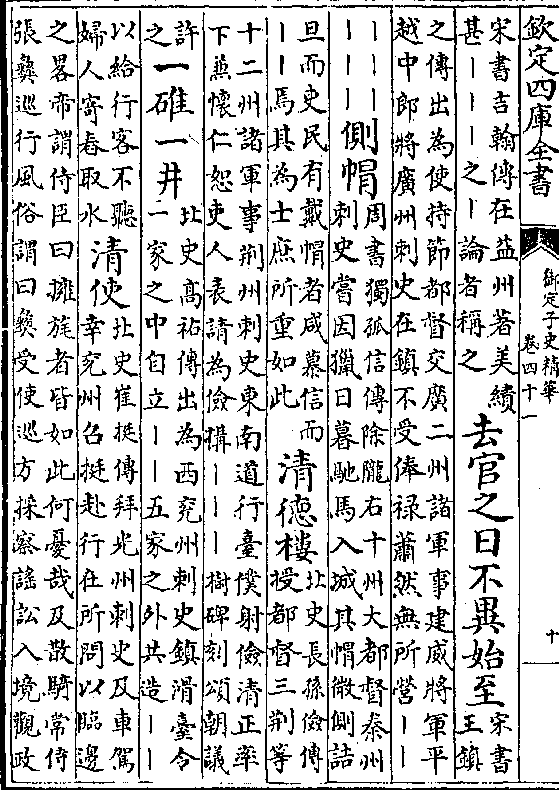 欽定四庫全書
御定子史精華
卷四十一
十
宋書吉翰傳在益州著美績
甚丨丨丨之丨論者稱之
去官之日不異始至
宋書
王鎮
之傳出為使持節都督交廣二州諸軍事建威將軍平
越中郎將廣州刺史在鎮不受俸禄蕭然無所營丨丨
丨丨丨
丨丨丨
側帽
周書獨孤信傳除隴右十州大都督秦州
刺史嘗因獵日暮馳馬入城其帽微側詰
旦而吏民有戴帽者咸慕信而
丨丨焉其為士庶所重如此
清德樓
北史長孫儉傳
授都督三荆等
十二州諸軍事荆州刺史東南道行臺僕射儉清正率
下兼懷仁恕吏人表請為儉搆丨丨丨樹碑刻頌朝議
許
之
一碓一井
北史髙祐傳出為西兖州刺史鎮滑臺令
一家之中自立丨丨五家之外共造丨丨
以給行客不聽
婦人寄舂取水
清使
北史崔挺傳拜光州刺史及車駕
幸兖州召挺赴行在所問以臨邊
之畧帝謂侍臣曰擁旄者皆如此何憂哉及散騎常侍
張彝巡行風俗謂曰彝受使巡方採察謡訟入境觀政